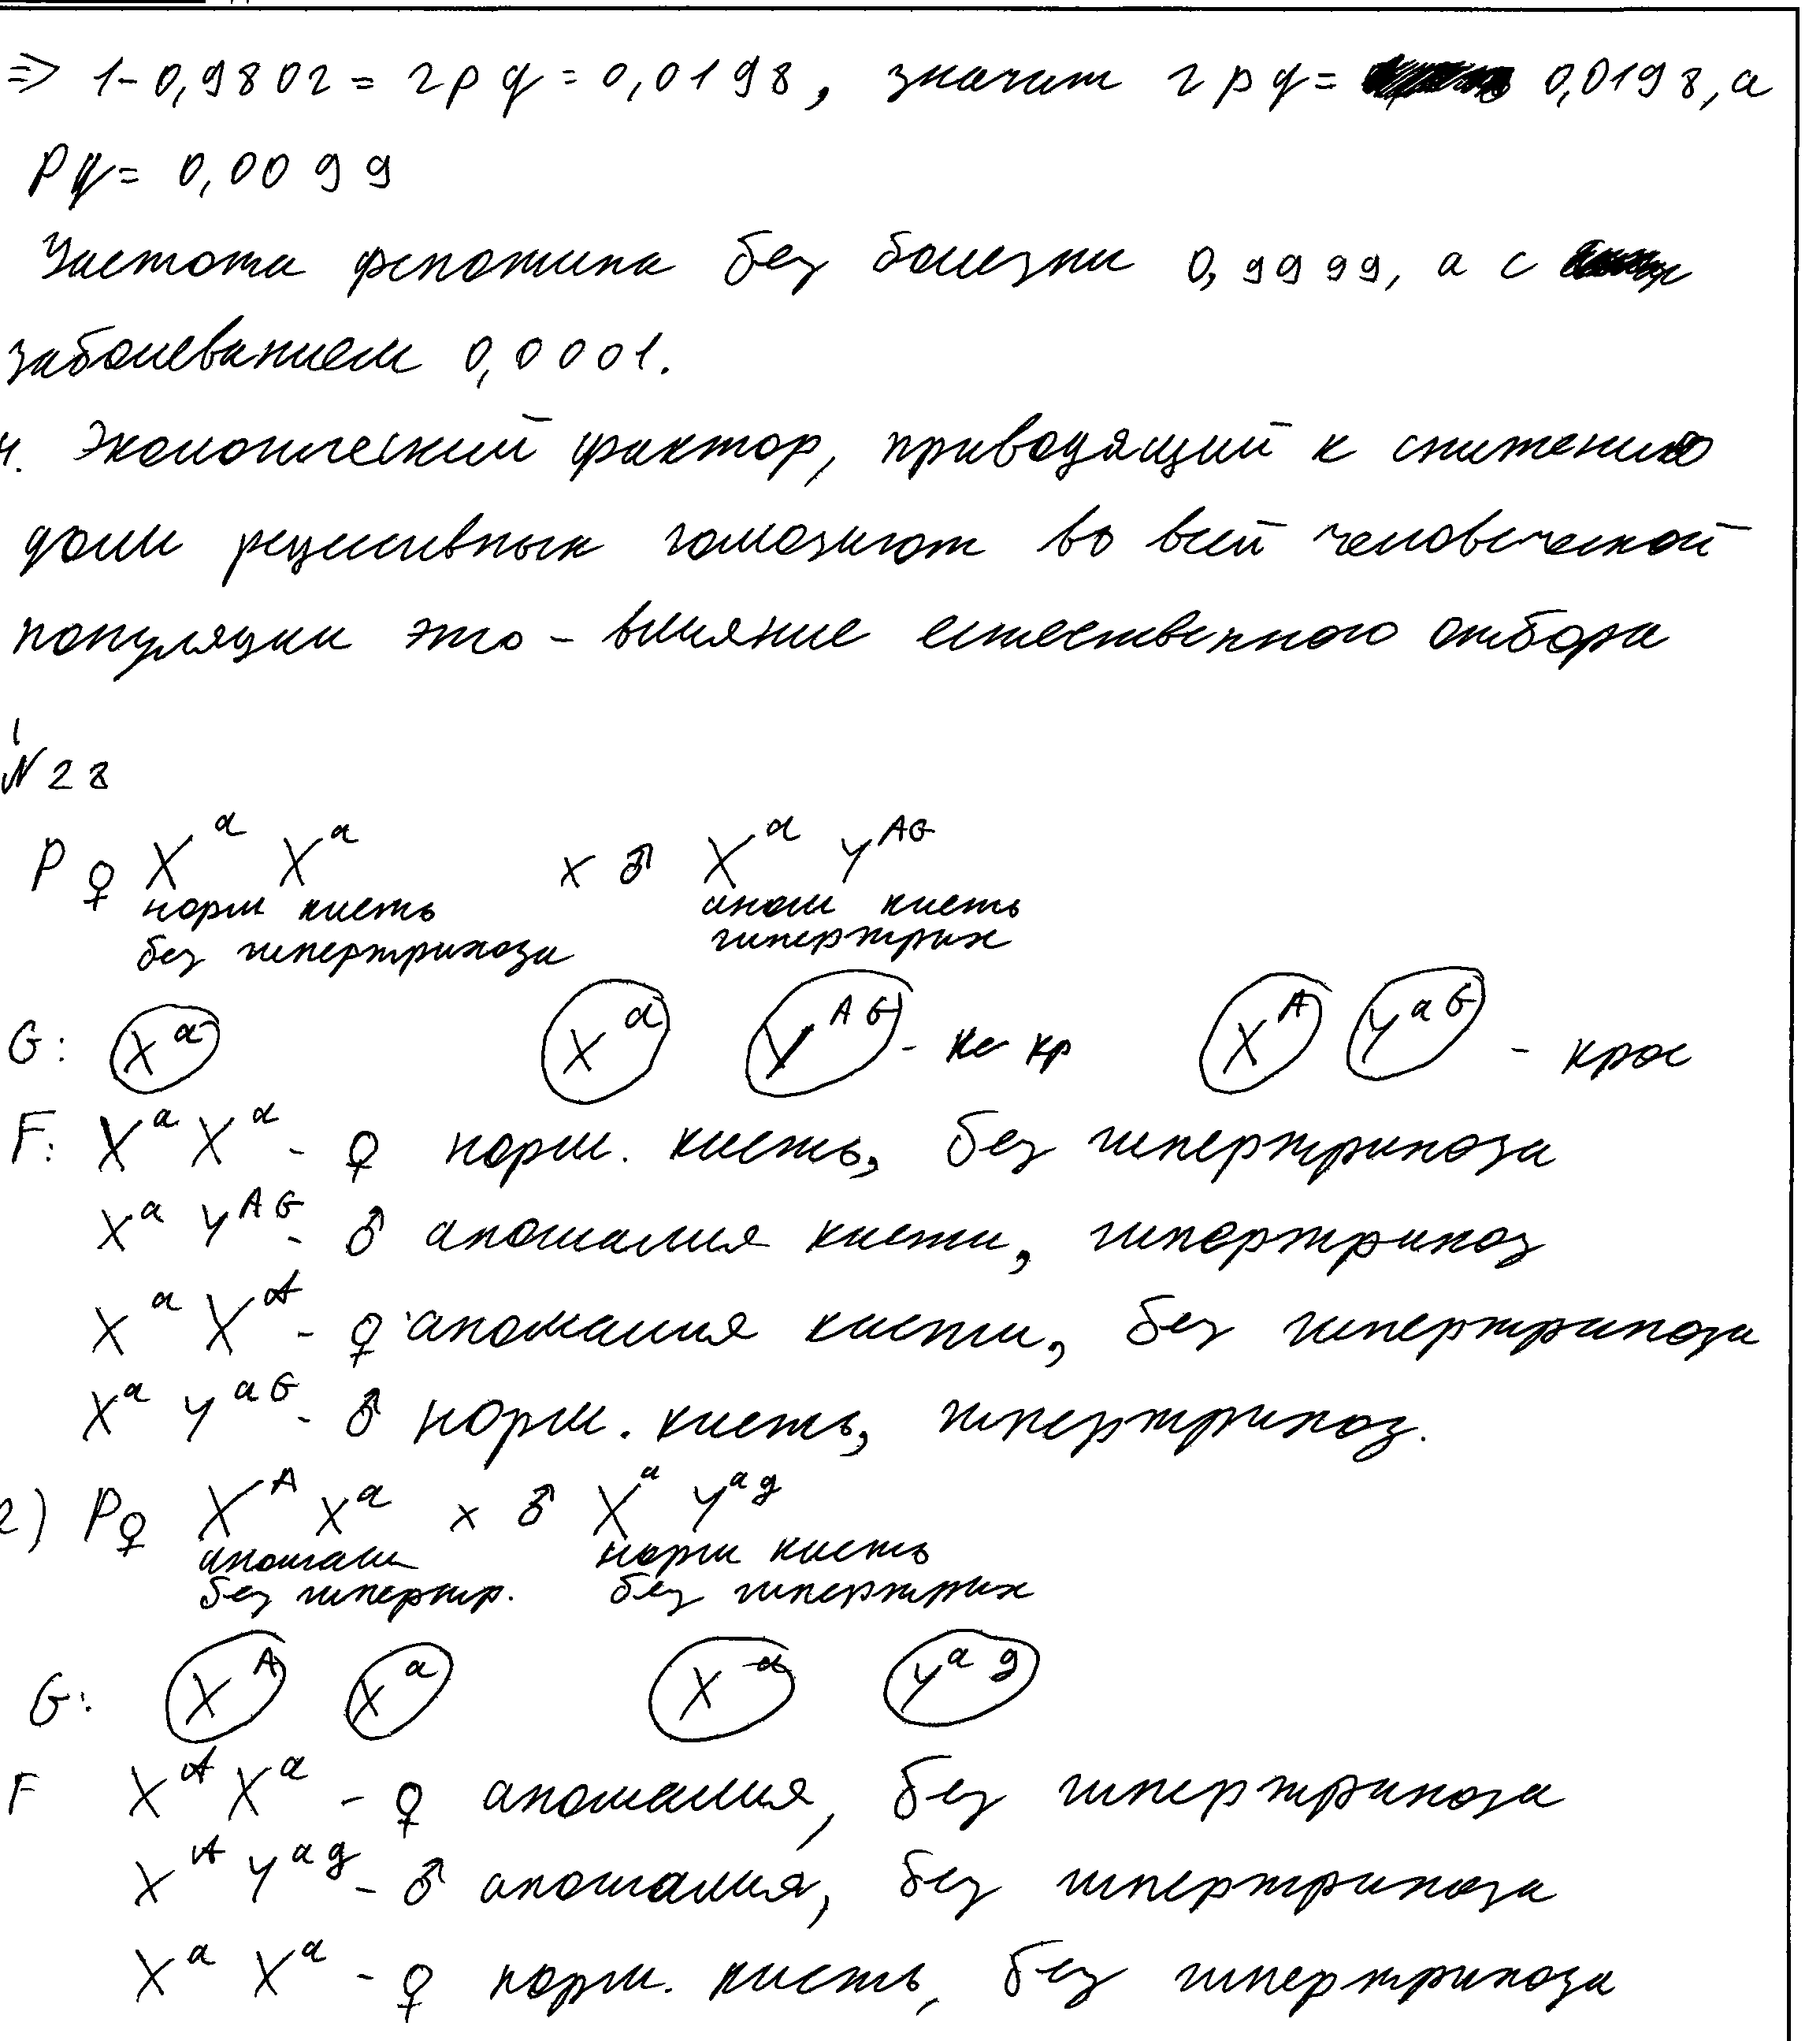 ⇒ 1-0,9802 = 2pq = 0,0198, значит 2pq = 0,0198, а
pq = 0,0099
Частота фенотипа без болезни 0,9999, а с
заболеванием 0,0001.
4. Экологический фактор, приводящий к снижению
доли рецессивных гомозигот во всей человеческой
популяции это - влияние естественного отбора
N 28
P ♀ X^a X^a x ♂ X^a Y^AG
норм кисть аном кисть
без гипертрихоза гипертрих
G: X^a X^a Y^AG - не кр X^A Y^aG - крос
F: X^a X^a - ♀ норм. кисть, без гипертрихоза
X^a Y^AG - ♂ аномалия кисти, гипертрихоз
X^a X^A - ♀ аномалия кисти, без гипертрихоза
X^a Y^aG - ♂ норм. кисть, гипертрихоз.
2) P♀ X^A X^a x ♂ X^a Y^ag
аномал норм кисть
без гипертр. без гипертрих
G: X^A X^a X^a Y^ag
F X^A X^a - ♀ аномалия, без гипертрихоза
X^A Y^ag - ♂ аномалия, без гипертрихоза
X^a X^a - ♀ норм. кисть, без гипертрихоза